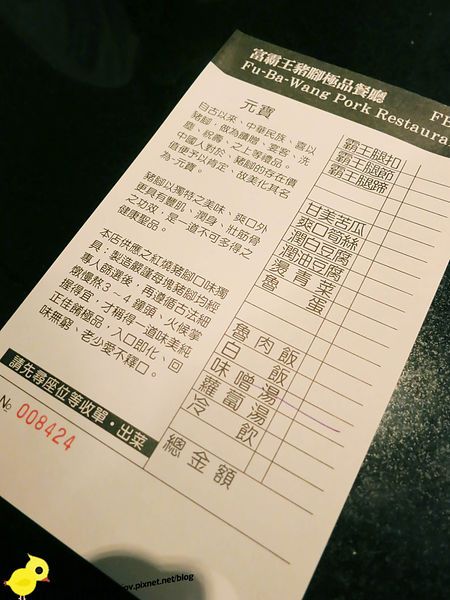 富霸王豬腳極品餐廳
Fu-Ba-Wang Pork Restaura
元寶
自古以來、中華民族、喜以
豬腳；做為饋贈、宴客、洗
塵、祝壽、之上等禮品。
中國人對於、豬腳的存在價
值便予以肯定、故美化其名
為-元寶。
豬腳以獨特之美味、爽口外
更具有豐肌、潤身、壯筋骨
之功效，是一道不可多得之
健康聖品。
本店供應之紅燒豬腳口味獨
具；製造嚴謹每塊豬腳均經
專人篩選後，再遵循古法細
燉慢熬3~4鐘頭，火候掌
握得宜，才稱得一道味美純
正佳餚極品，入口即化、回
味無窮、老少愛不釋口。
請先尋座位等收單·出菜
№ 008424
霸王腿扣
霸王腿節
霸王腿蹄
甘美苦瓜
爽口筍絲
潤白豆腐
潤油豆腐
燙青菜
魯蛋
魯肉飯
白飯
味噌湯
蘿蔔湯
冷飲
總金額
.pixnet.net/blog